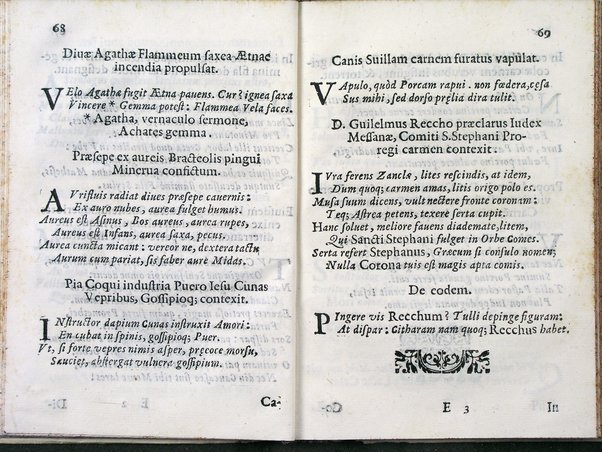 68
Divæ Agathæ Flammeum saxea Ætnæ
incendia propulsat.
VElo Agathæ fugit Ætna pauens. Cur? ignea saxa
Vincere * Gemma potest: Flammea Vela faces.
* Agatha, vernaculo sermone,
Achates gemma.
Præsepe ex aureis Bracteolis pingui
Minerua confictum.
AVrifluis radiat diues præsepe cauernis:
Ex auro nubes, aurea fulget humus.
Aureus est Asinus, Bos aureus, aurea rupes,
Aureus est Infans, aurea saxa, pecus.
Aurea cuncta micant: vereor ne, dextera tactæ
Aurum cum pariat, sis faber aure Midas.
Pia Coqui industria Puero Iesu Cunas
Vepribus, Gossipioq; contexit.
INstructor dapium Cunas instruxit Amori:
En cubat in spinis, gossipioq; Puer.
Vt, si forte vepres nimis asper, præcoce morsu,
Sauciet, abstergat vulnera gossipium.
E 2
Ca-
69
Canis Suillam carnem furatus vapulat.
VApulo, quòd Porcam rapui. non fœdera, cæsa
Sus mihi, sed dorso prælia dira tulit.
D. Guilelmus Reccho præclarus Iudex
Messanæ, Comiti S. Stephani Pro-
regi carmen contexit.
IVra ferens Zanclæ, lites rescindis, at idem,
Dum quoq; carmen amas, litis origo polo es.
Musa suum dicens, vult nectere fronte coronam:
Teq; Astrea petens, texere serta cupit.
Hanc soluet, meliore fauens diademate, litem,
Qui Sancti Stephani fulget in Orbe Comes.
Serta refert Stephanus, Græcum si consulo nomen;
Nulla Corona tuis est magis apta comis.
De eodem.
PIngere vis Recchum? Tulli depinge figuram:
At dispar: Citharam nam quoq; Recchus habet.
E 3
In